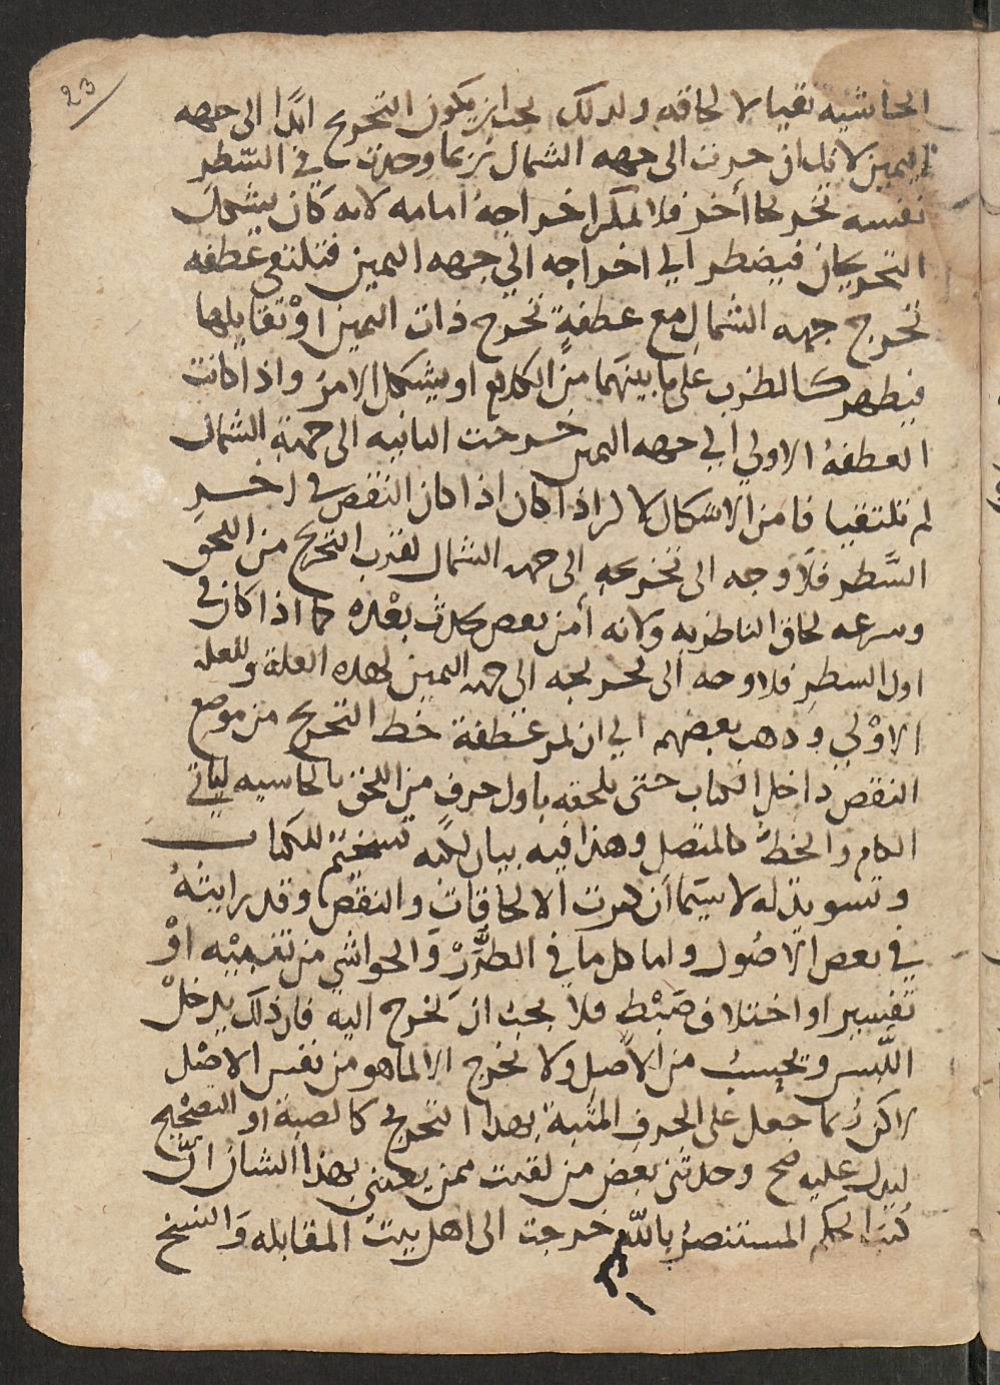 23
الحاشية نقيا لالحاقه ولذلك يجب ان يكون التخريج ابدا الى جهه
اليمين لانك ان خرجت الى جهه الشمال فربما وجدت في السّطر
نفسه تخريجا آخر فلا يمكن اخراجهُ امامه لانه كان يشكل
التخريجان فيضطر الى اخراجه الى جهه اليمين فتلتقي عطفه
تخرج جهه الشمالِ مع عطفةٍ تخرج ذات اليمين اوْ تقابلها
فيظهر كالضرب على ما بينهما من الكلام او يشكل الامرُ واذا كانت
العطفهُ الاولي الي جهه اليمين خرجت الثانيه الى جهة الشمال
لم تلتقيا فامن الاشكال الا اذا كان اذا كان النقص في اخر
السَّطر فلا وجه الى تخريجه الى جهه الشمال لقرب التخريج من اللحق
وسرعه لحاق الناظر به ولانه أمن نقص يحدث بعْده كما اذا كان في
اول السطر فلا وجه الى تخريجه الى جهه اليمين لهذه العلة وللعله
الاوْلي وذهب بعضهم الي ان يمر عطفة خط التخريج من موضع
النقص داخل الكتاب حتى يلحقه باول حرفٍ من اللحق بالحاشيه ليأتي
الكلام والخطّ كالمتصل وهذا فيه بيان لكنه تسخيم للكتاب
وتسويد له لا سيّما ان كثرت الالحاقات والنقص وقد رايتهُ
في بعض الاصُول واما كل ما في الطُّرَرْ وَالحواشي من تنبيْه اوْ
تفسير او اختلاف ضَبْطٍ فلا يجب ان يَخرج اليه فان ذلك يدخلْ
اللَّبس ويحسبُ من الاصل ولا يخرج الا لما هو من نفس الاصْل
لاكن رُبما جعل على الحرفِ المثبة بهذا التخريج كالضبة او التصْحيح
ليدل عليه صح وحدثني بعض من لقيت ممن يعتني بهذا الشان انّ
كُتب الحكم المستنصرُ باللّه خرجت الى اهل بيت المقابله وَالنسخ